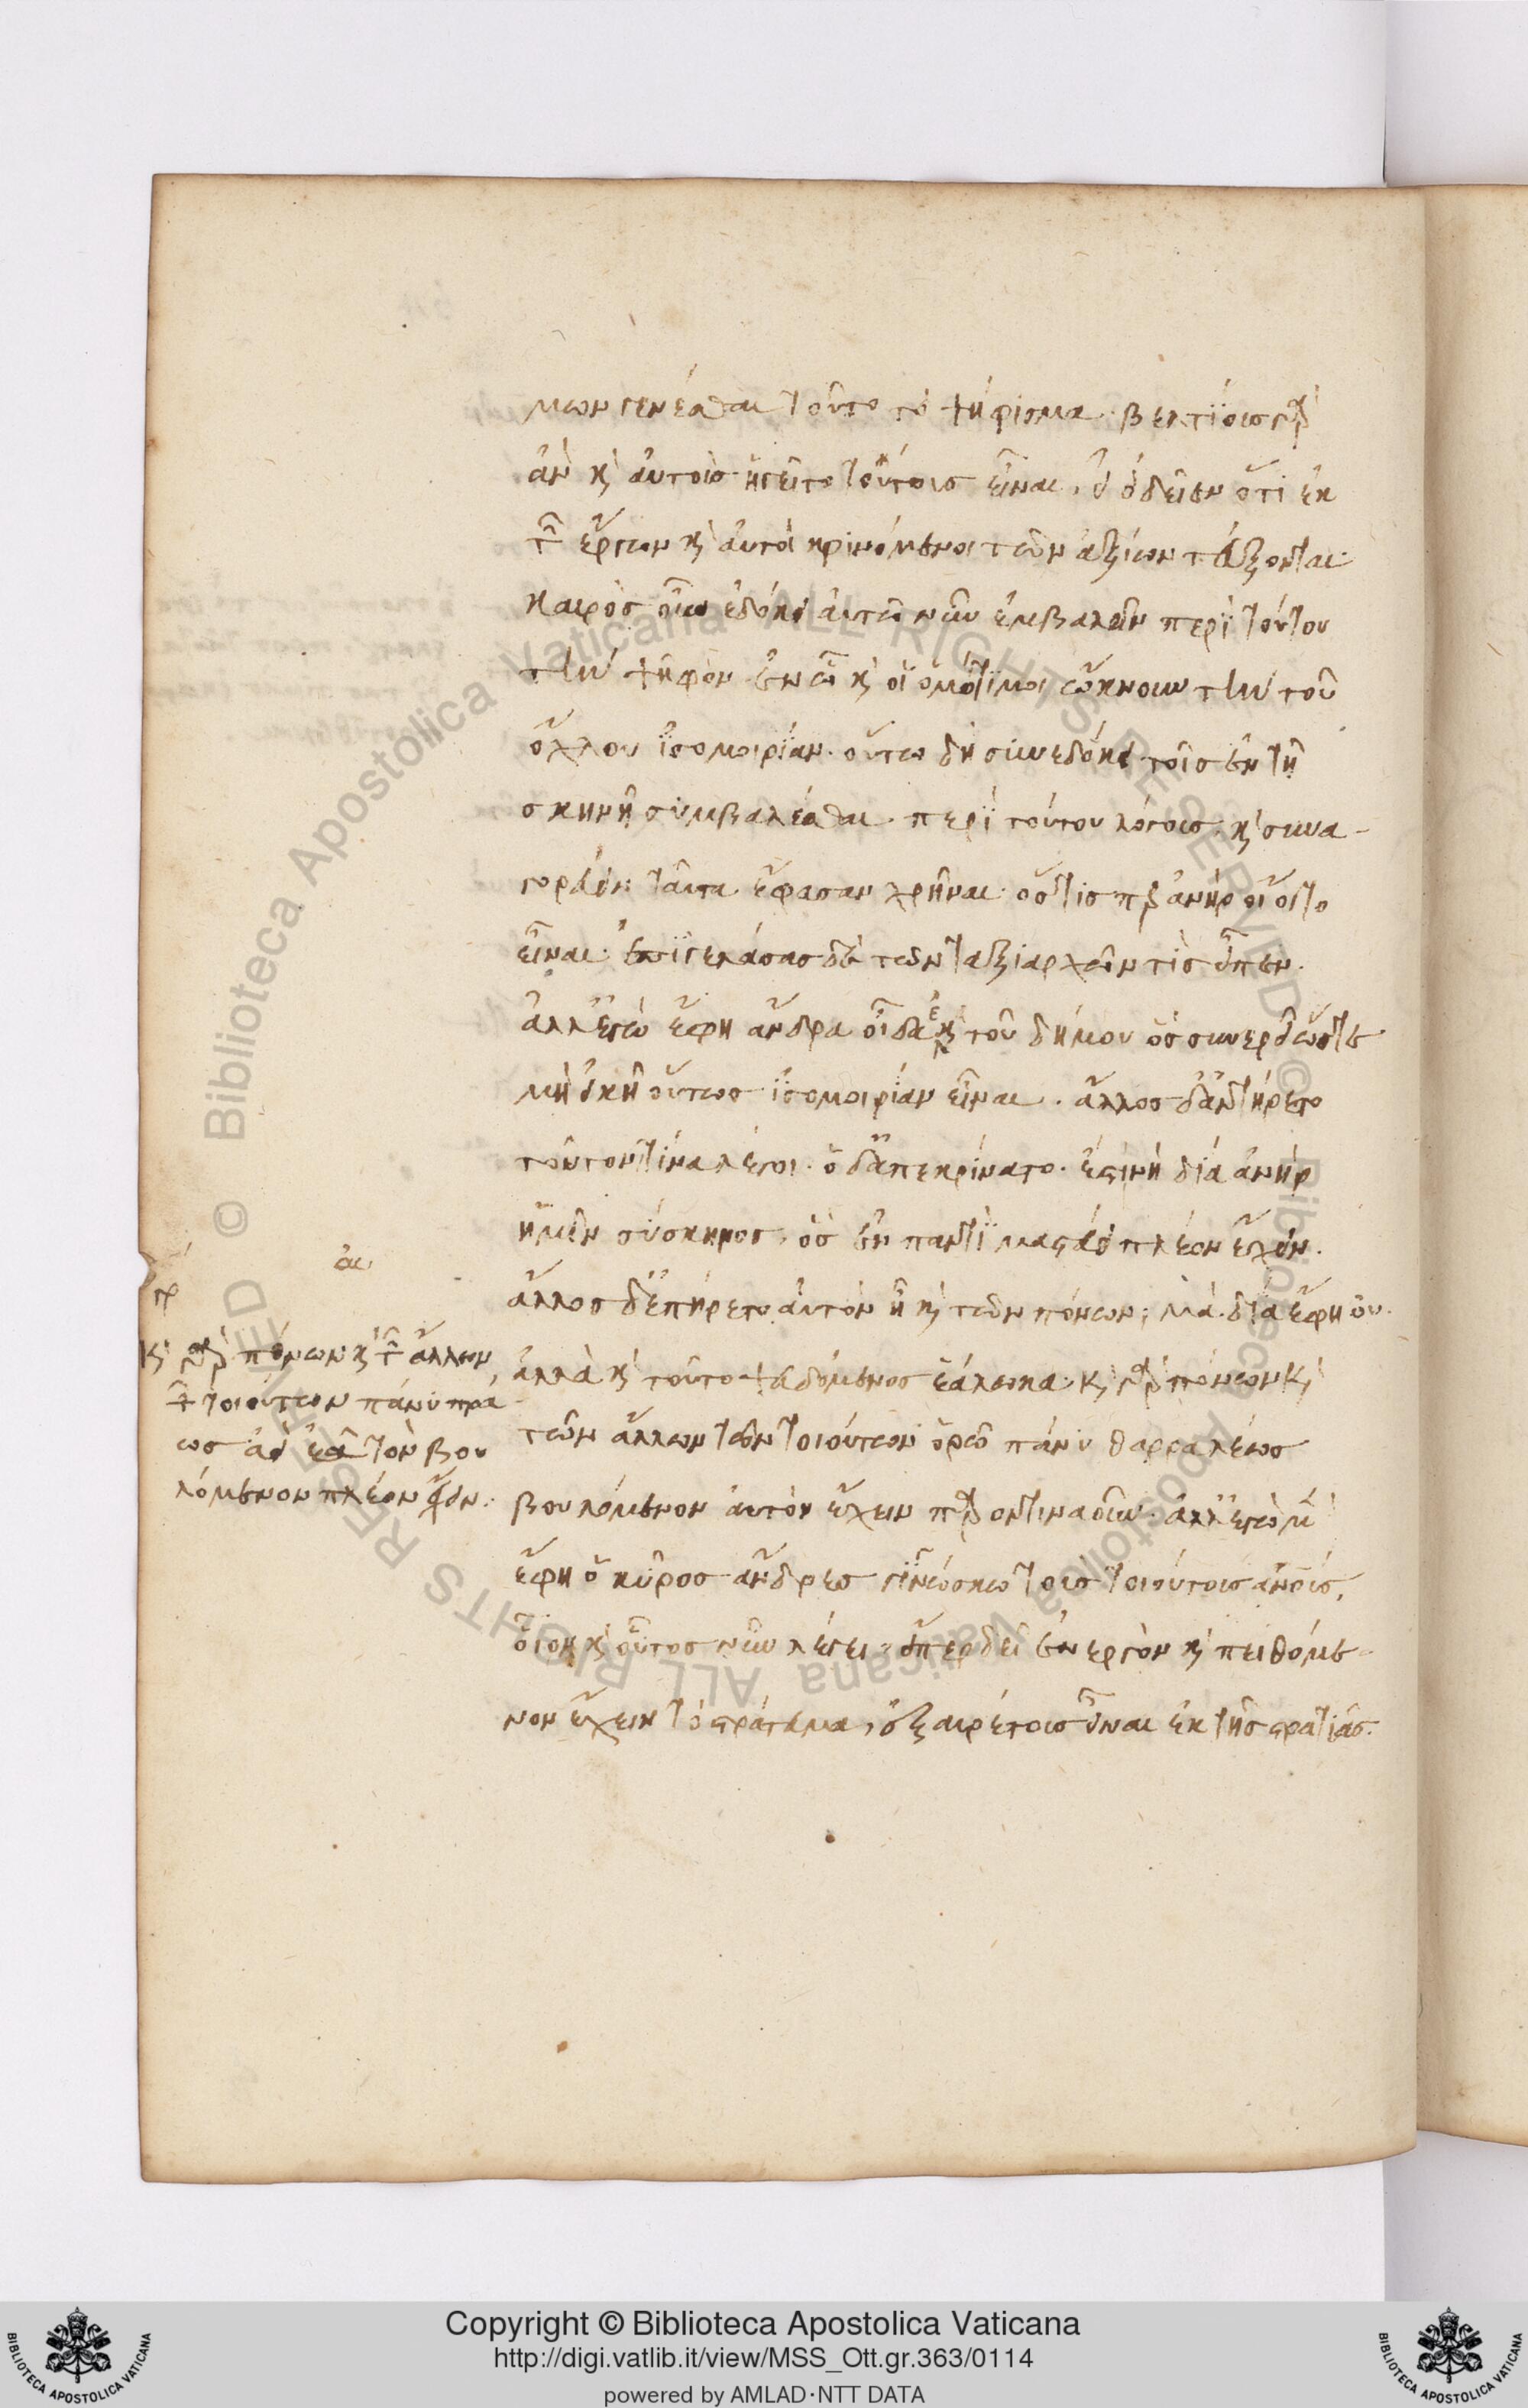 μων γενέσθαι τοῦτο τὸ ψήφισμα. βελτίους γὰρ
ἂν καὶ αὐτοὺς ἡγεῖτο τούτους εἶναι, εἰ εἰδεῖεν ὅτι ἐκ
τῶν ἔργων καὶ αὐτοὶ κρινόμενοι τῶν ἀξίων τεύξονται.
καιρὸς οὖν ἐδόκει αὐτῷ νῦν ἐμβαλεῖν περὶ τούτου
τὴν ψῆφον. ἐν ᾧ καὶ οἱ ὁμότιμοι ὤκνουν τὴν τοῦ
ὄχλου ἰσομοιρίαν. οὕτω δὴ συνεδόκει τοῖς ἐν τῇ
σκηνῇ συμβαλέσθαι περὶ τούτου λόγους. καὶ συνα-
γορεύειν ταῦτα ἔφασαν χρῆναι. ὅστις περ ἀνὴρ οἴοιτο
εἶναι. ἐπιγελάσας δὲ τῶν ταξιάρχων τὶς εἶπεν.
ἀλλ' ἐγὼ ἔφη ἄνδρα οἶδα ἐκ τοῦ δήμου ὃς συνερεῖ ὥστε
μὴ εἰκῇ οὕτως ἰσομοιρίαν εἶναι. ἄλλος δ' ἀντήρετο
τοῦτον τίνα λέγοι. ὁ δ' ἀπεκρίνατο. ἔστι νὴ δία ἀνὴρ
ἡμῖν σύσκηνος, ὃς ἐν παντὶ μαστεύει πλέον ἔχειν.
ἄλλος δ' ἐπήρετο αὐτὸν ἦ καὶ τῶν πόνων; μὰ δία ἔφη οὔ.
ἀλλὰ καὶ τοῦτο ψευδόμενος ἑάλωκα. καὶ γὰρ πόνων καὶ
τῶν ἄλλων τῶν τοιούτων ὁρῶ πάνυ θαρραλέως
βουλόμενον αὐτὸν ἔχειν παρ' ὁντιναοῦν. ἀλλ' ἐγὼ μὲν
ἔφη ὁ κῦρος ἄνδρες γινώσκω τοὺς τοιούτους ἀνθρώπους,
οἷον καὶ οὗτος νῦν λέγει, εἴπερ δεῖ ἐνεργὸν καὶ πειθόμε-
νον ἔχειν τὸ στράτευμα, ἐξαιρέτους εἶναι ἐκ τῆς στρατιᾶς.
γρ
καὶ γὰρ πόνων καὶ τῶν ἄλλων
τῶν τοιούτων πάνυ πρά-
ως ἀεὶ ἐᾷ τὸν βου
λόμενον πλέον ἔχειν:
Copyright © Biblioteca Apostolica Vaticana
http://digi.vatlib.it/view/MSS_Ott.gr.363/0114
powered by AMLAD·NTT DATA